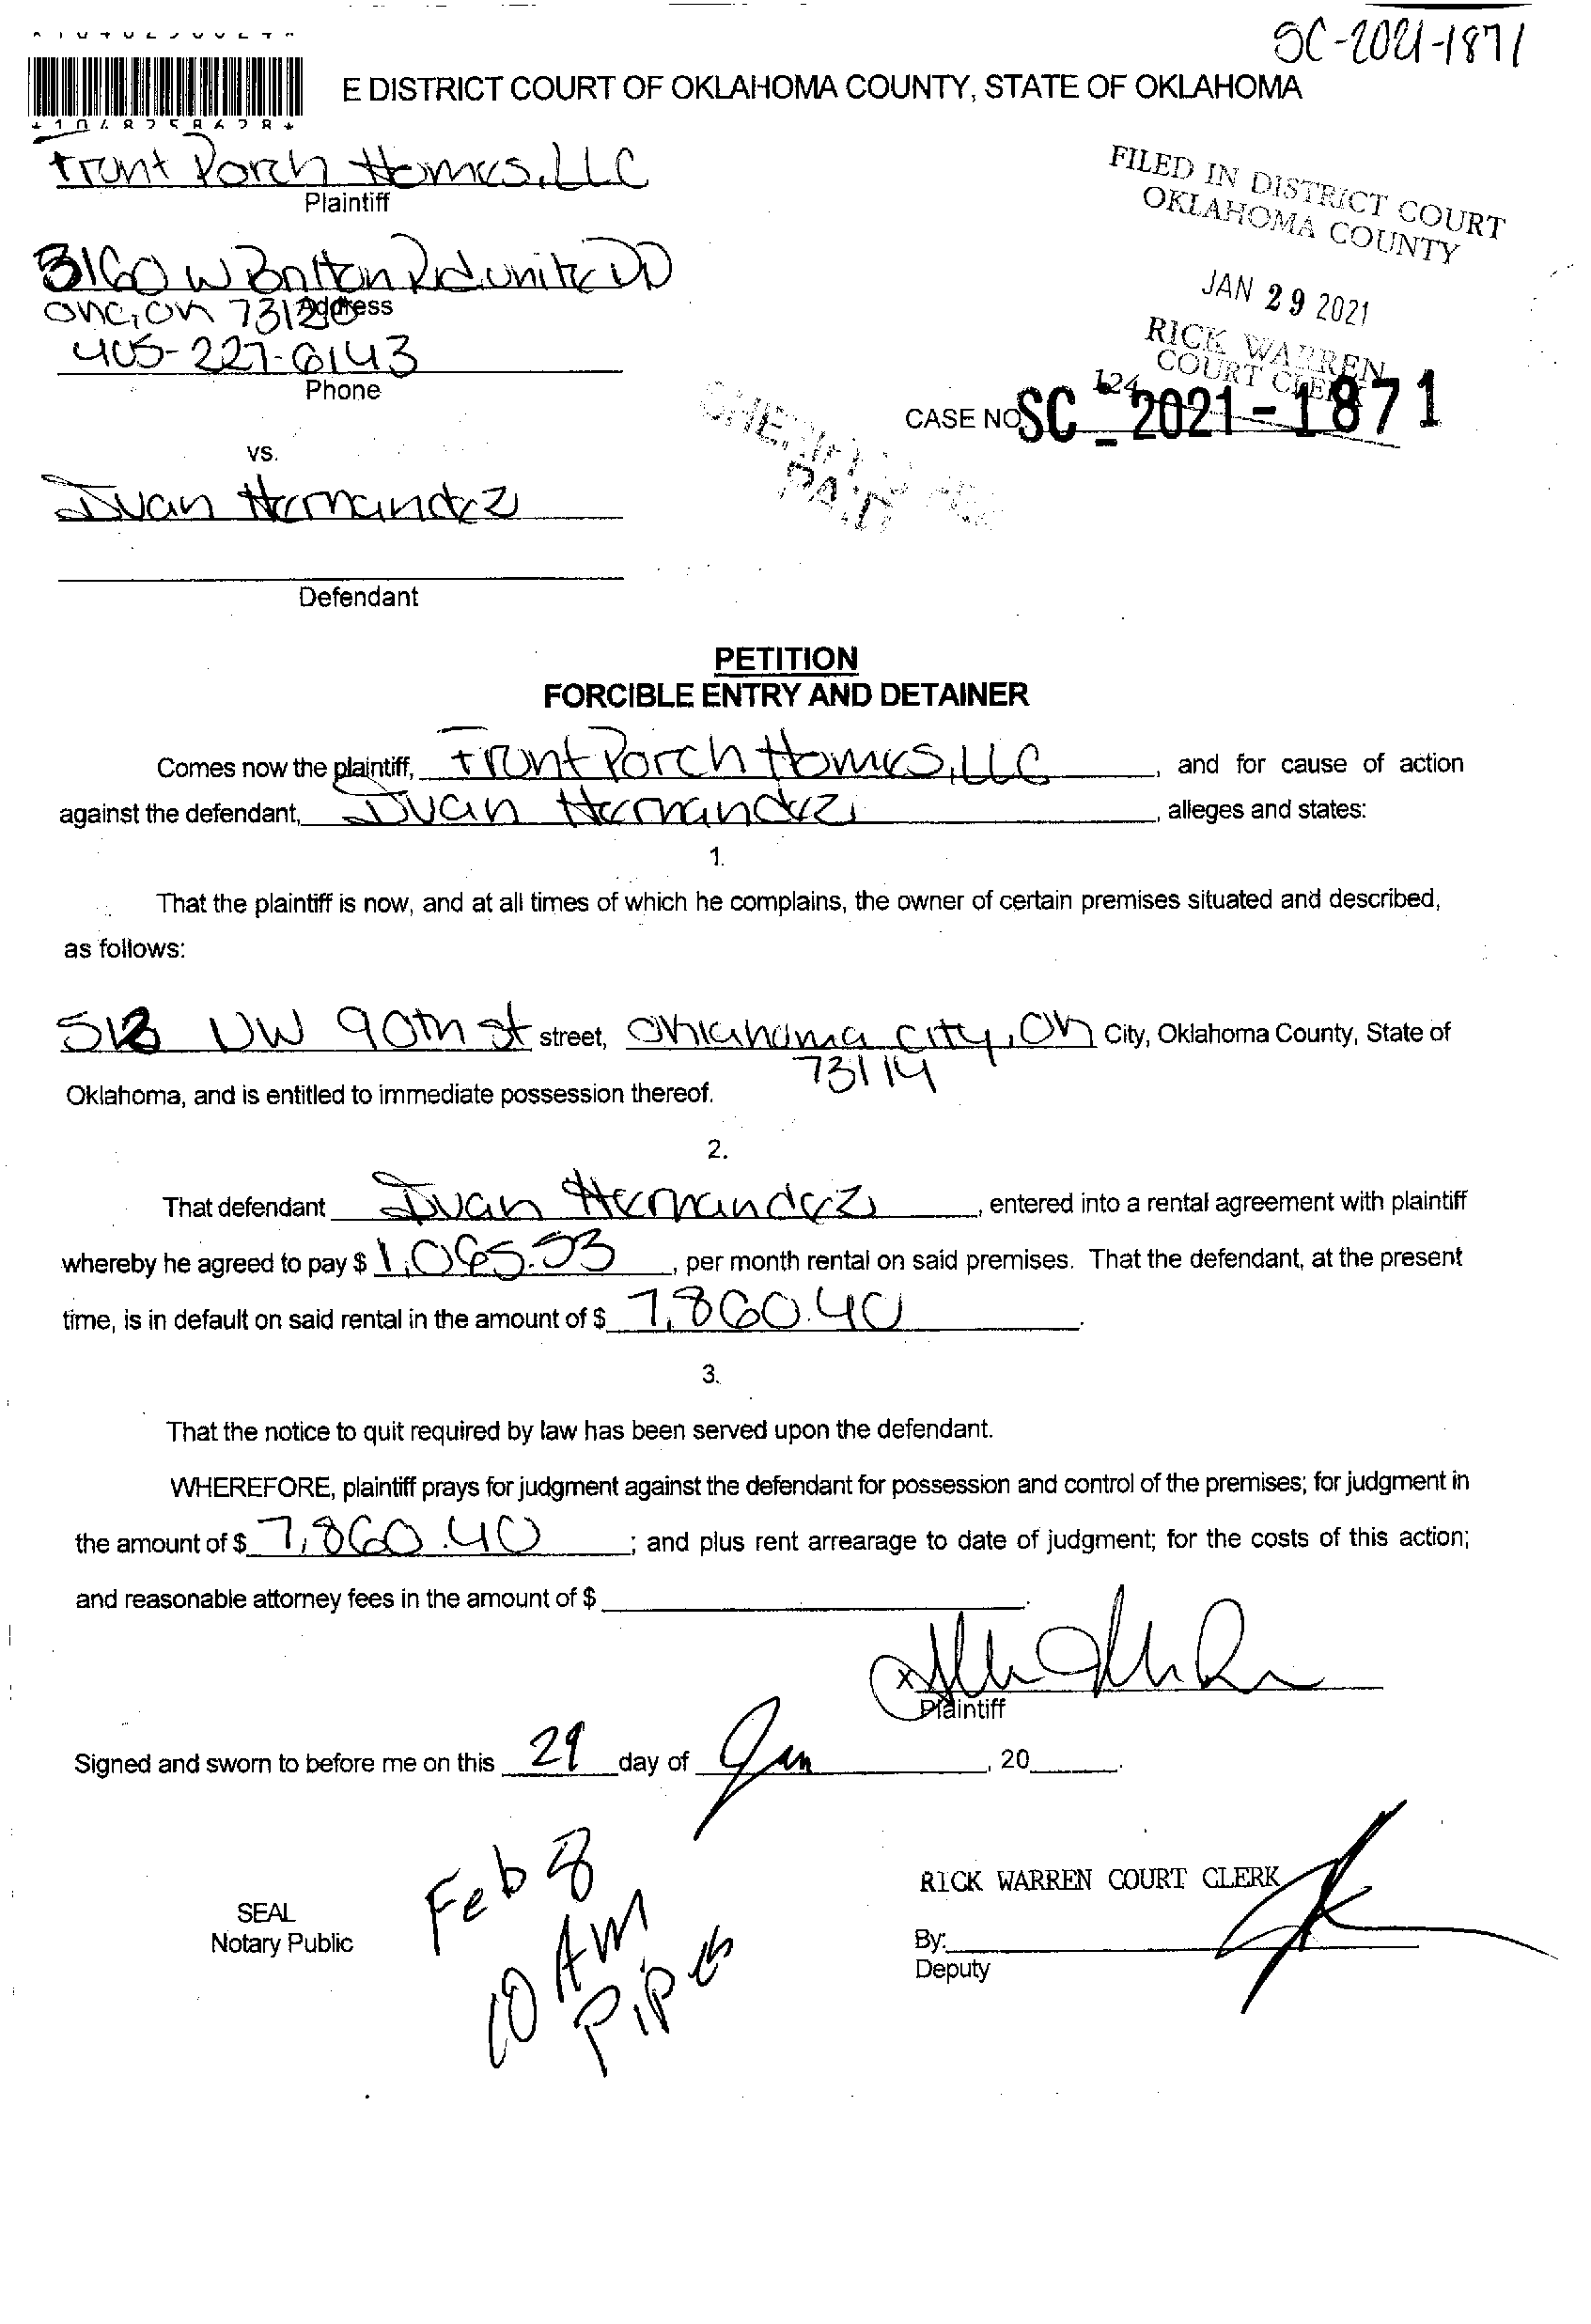 SC-2021-1871
E DISTRICT COURT OF OKLAHOMA COUNTY, STATE OF OKLAHOMA
*1048258628*
Front Porch Homes, LLC
Plaintiff
FILED IN DISTRICT COURT
OKLAHOMA COUNTY
3160 W Britton Rd unite DD
OKC, OK 73120
Address
JAN 29 2021
405-227-6143
Phone
RICK WARREN
COURT CLERK
124
CASE NO. SC - 2021 - 1871
PAID
vs.
Juan Hernandez
Defendant
PETITION
FORCIBLE ENTRY AND DETAINER
Comes now the plaintiff, Front Porch Homes, LLC, and for cause of action
against the defendant, Juan Hernandez, alleges and states:
1.
That the plaintiff is now, and at all times of which he complains, the owner of certain premises situated and described,
as follows:
512 NW 90th st street, Oklahoma city, OK City, Oklahoma County, State of
73114
Oklahoma, and is entitled to immediate possession thereof.
2.
That defendant Juan Hernandez, entered into a rental agreement with plaintiff
whereby he agreed to pay $ 1,065.53, per month rental on said premises. That the defendant, at the present
time, is in default on said rental in the amount of $ 7,860.40.
3.
That the notice to quit required by law has been served upon the defendant.
WHEREFORE, plaintiff prays for judgment against the defendant for possession and control of the premises; for judgment in
the amount of $ 7,860.40; and plus rent arrearage to date of judgment; for the costs of this action;
and reasonable attorney fees in the amount of $
x
Plaintiff
Signed and sworn to before me on this 29 day of Jan, 20
Feb 8
10 AM
SEAL
Notary Public
RICK WARREN COURT CLERK
By:
Deputy